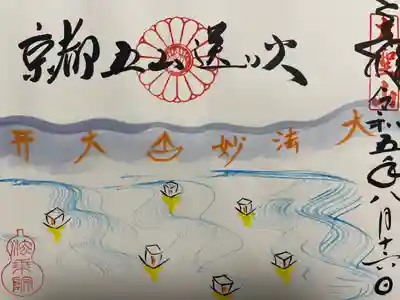 京都五山送り火
大 妙 法 大
令和五年八月十六日